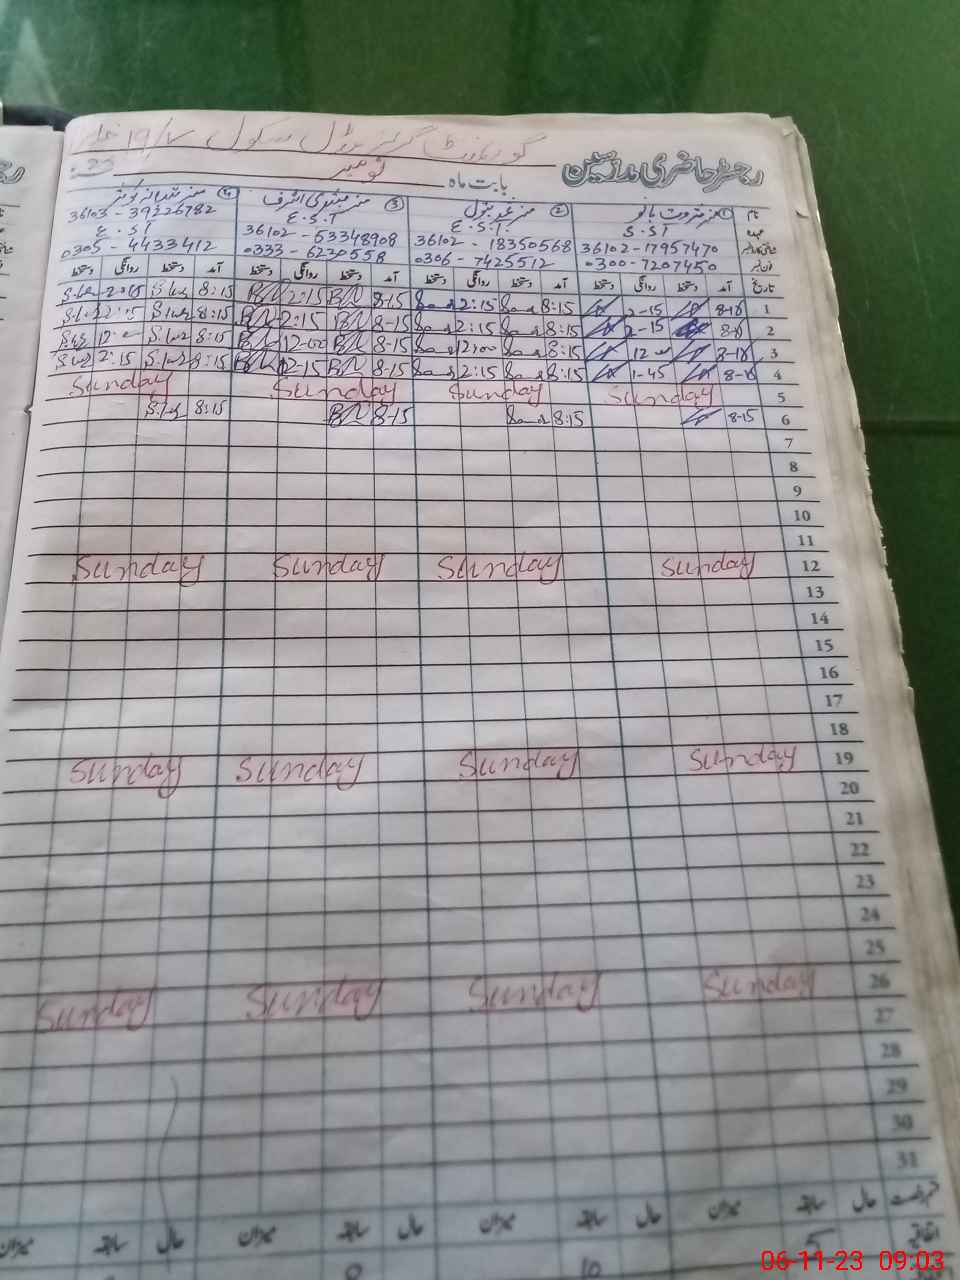 گورنمنٹ گرلز ماڈل سکول
رجسٹر حاضری ملازمین بابت ماہ نومبر 23
نام ① مسز ثروت بانو ② مسز بتول ③ مسز بشریٰ اشرف ④ مسز شبانہ کوثر
عہدہ S.S.T E.S.T E.S.T E.S.T
36102-17957470 36102-18350568 36102-53348908 36103-39226782
0300-7207450 0306-7425512 0333-6230558 0305-4433412
تاریخ آمد دستخط روانگی دستخط آمد دستخط روانگی دستخط آمد دستخط روانگی دستخط آمد دستخط روانگی دستخط
1 8:15 2:15 8-15 2:15 8:15 2:15
2 2-15 8:15 2:15 8-15 2:15 8:15 2:15
3 12 8:15 12:00 8-15 12-00 8:15 12
4 1-45 8:15 2:15 8-15 12-15 8:15 2:15
5 Sunday Sunday Sunday Sunday
6 8-15 8:15 8-15 8:15
7
8
9
10
11
12 Sunday Sunday Sunday Sunday
13
14
15
16
17
18
19 Sunday Sunday Sunday Sunday
20
21
22
23
24
25
26 Sunday Sunday Sunday Sunday
27
28
29
30
31
حال سابقہ میزان حال سابقہ میزان حال سابقہ میزان
5 10 8
06-11-23 09:03